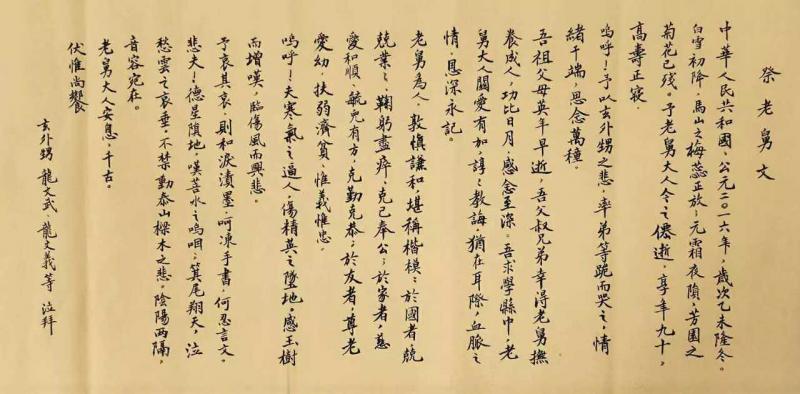 祭老舅文
中華人民共和國,公元二〇一六年,歲次乙未隆冬。
白雪初降,馬山之梅蕊正放;元霜夜隕,芳園之
菊花已殘。予老舅大人今之僊逝,享年九十。
高壽正寢。
嗚呼!予以玄外甥之悲,率弟等跪而哭之,情
緒千端,思念萬種。
吾祖父母英年早逝,吾父叔兄弟幸得老舅撫
養成人,功比日月,感念至深。吾求學縣中,老
舅大人關愛有加,諄諄教誨,猶在耳際,血脈之
情,恩深永記。
老舅為人,敦慎謙和堪稱楷模:於國者,兢
兢業業,鞠躬盡瘁,克己奉公;於家者,慈
愛和順、毓兒有方,克勤克恭;於友者,尊老
愛幼,扶弱濟貧、惟義惟忠。
嗚呼!夫寒氣之逼人,傷精英之墜地,感玉樹
而增嘆,臨傷風而興悲。
予哀其哀,則和淚漬墨,呵凍手書,何忍言文。
悲夫!德星隕地,嘆苦水之嗚咽;箕尾翔天,泣
愁雲之哀垂。不禁動泰山樑木之悲。陰陽兩隔,
音容宛在。
老舅大人安息,千古。
伏惟尚饗
玄外甥 龍文武、龍文義等 泣拜